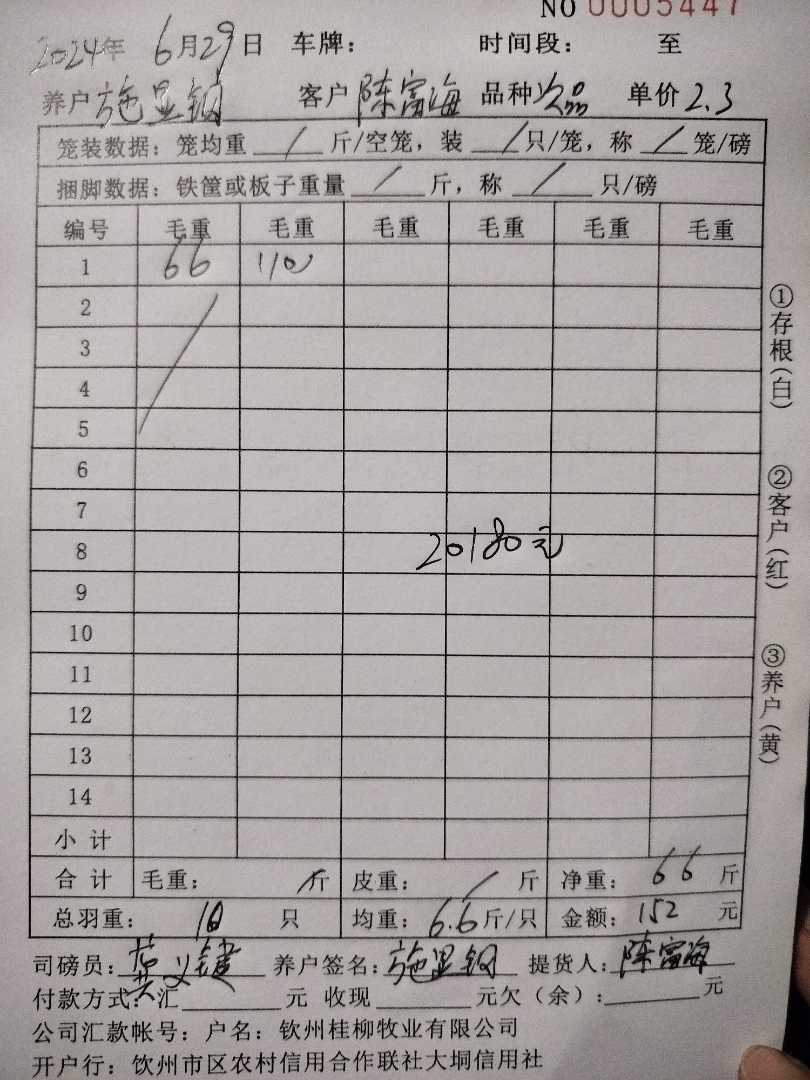 NO 0005447
2024年 6月29日 车牌： 时间段： 至
养户 施显钢 客户 陈富海 品种 次品 单价 2.3
笼装数据：笼均重 / 斤/空笼，装 / 只/笼，称 / 笼/磅
捆脚数据：铁筐或板子重量 / 斤，称 / 只/磅
编号 毛重 毛重 毛重 毛重 毛重 毛重
1 66 110
2
3
4
5
6
7
8 20180元
9
10
11
12
13
14
小计
合计 毛重： / 斤 皮重： / 斤 净重： 66 斤
总羽重： 10 只 均重： 6.6 斤/只 金额： 152 元
司磅员： 义键 养户签名： 施显钢 提货人： 陈富海
付款方式：汇 元 收现 元欠（余）： 元
公司汇款帐号：户名：钦州桂柳牧业有限公司
开户行：饮州市区农村信用合作联社大垌信用社
①存根（白）
②客户（红）
③养户（黄）